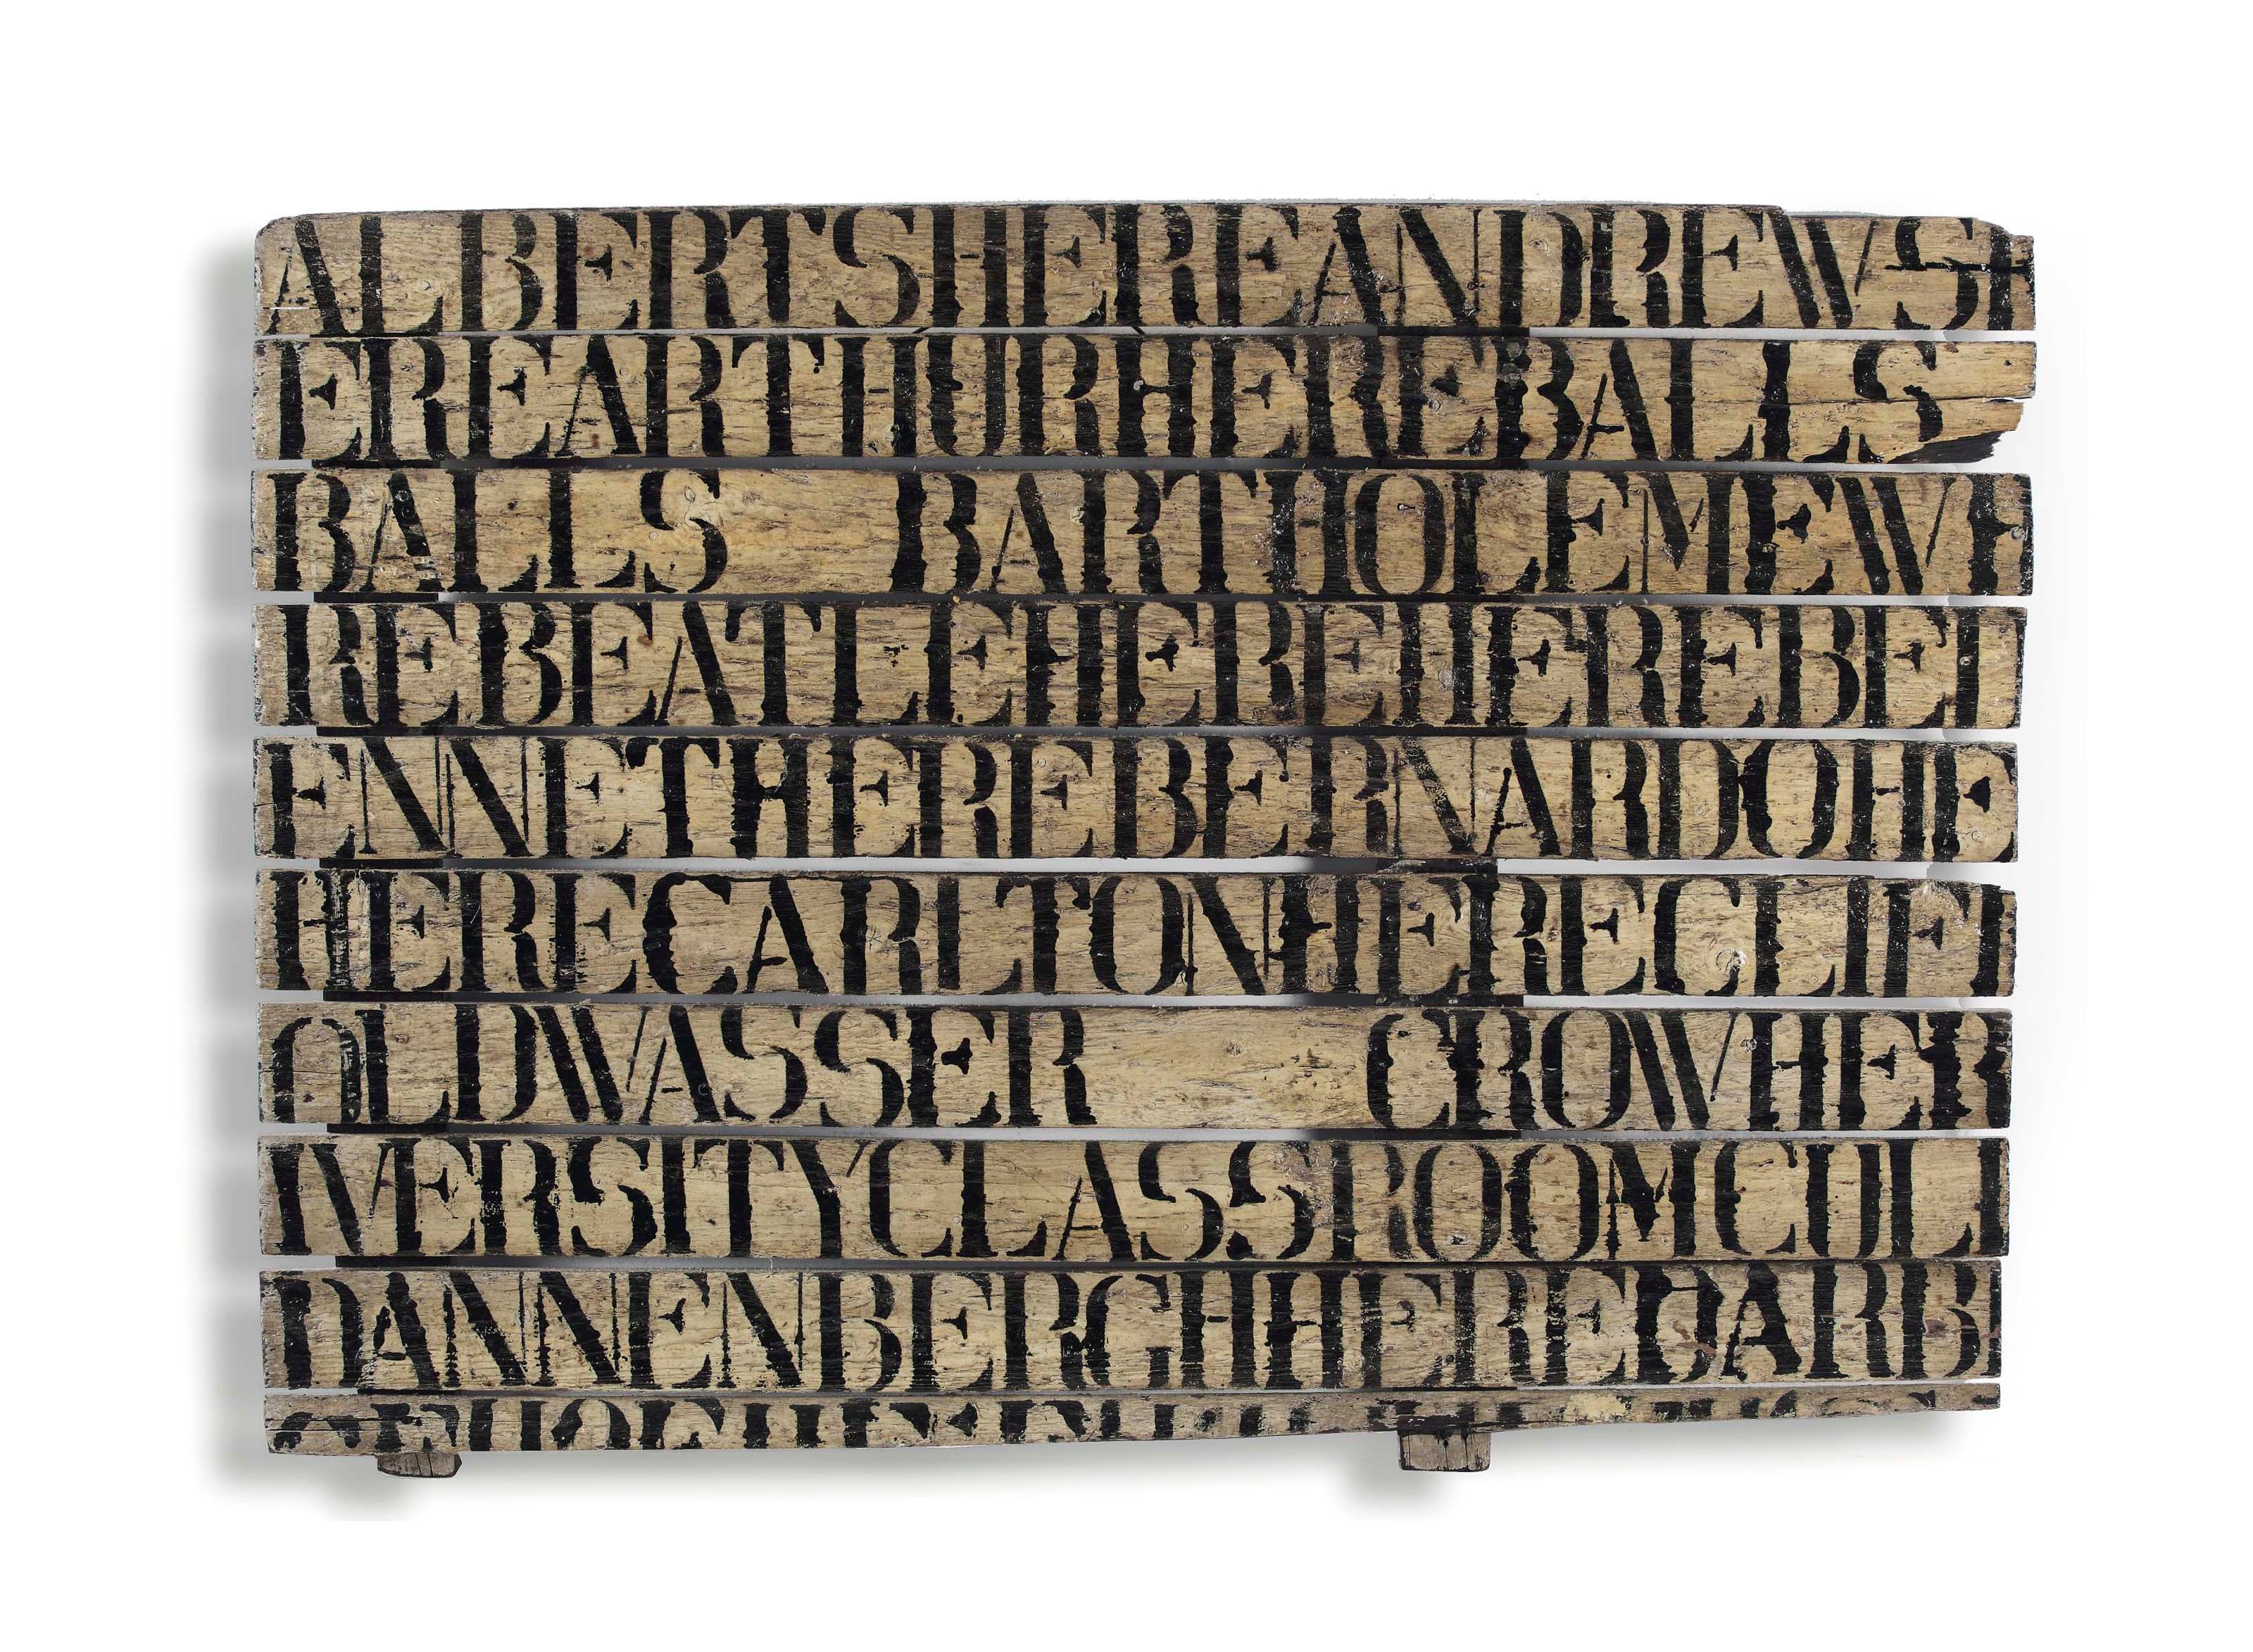 ALBERTSHEREANDREWSH
EREARTHURHEREBALLS
BALLS BARTHOLEMEWH
REBEATLEHEREHEREBEI
ENNETHEREBERNARDOHE
HERECARLTONHERECLIFI
OLDWASSER CROWHER
IVERSITYCLASSROOMCULI
DANNENBERGHHEREDARB